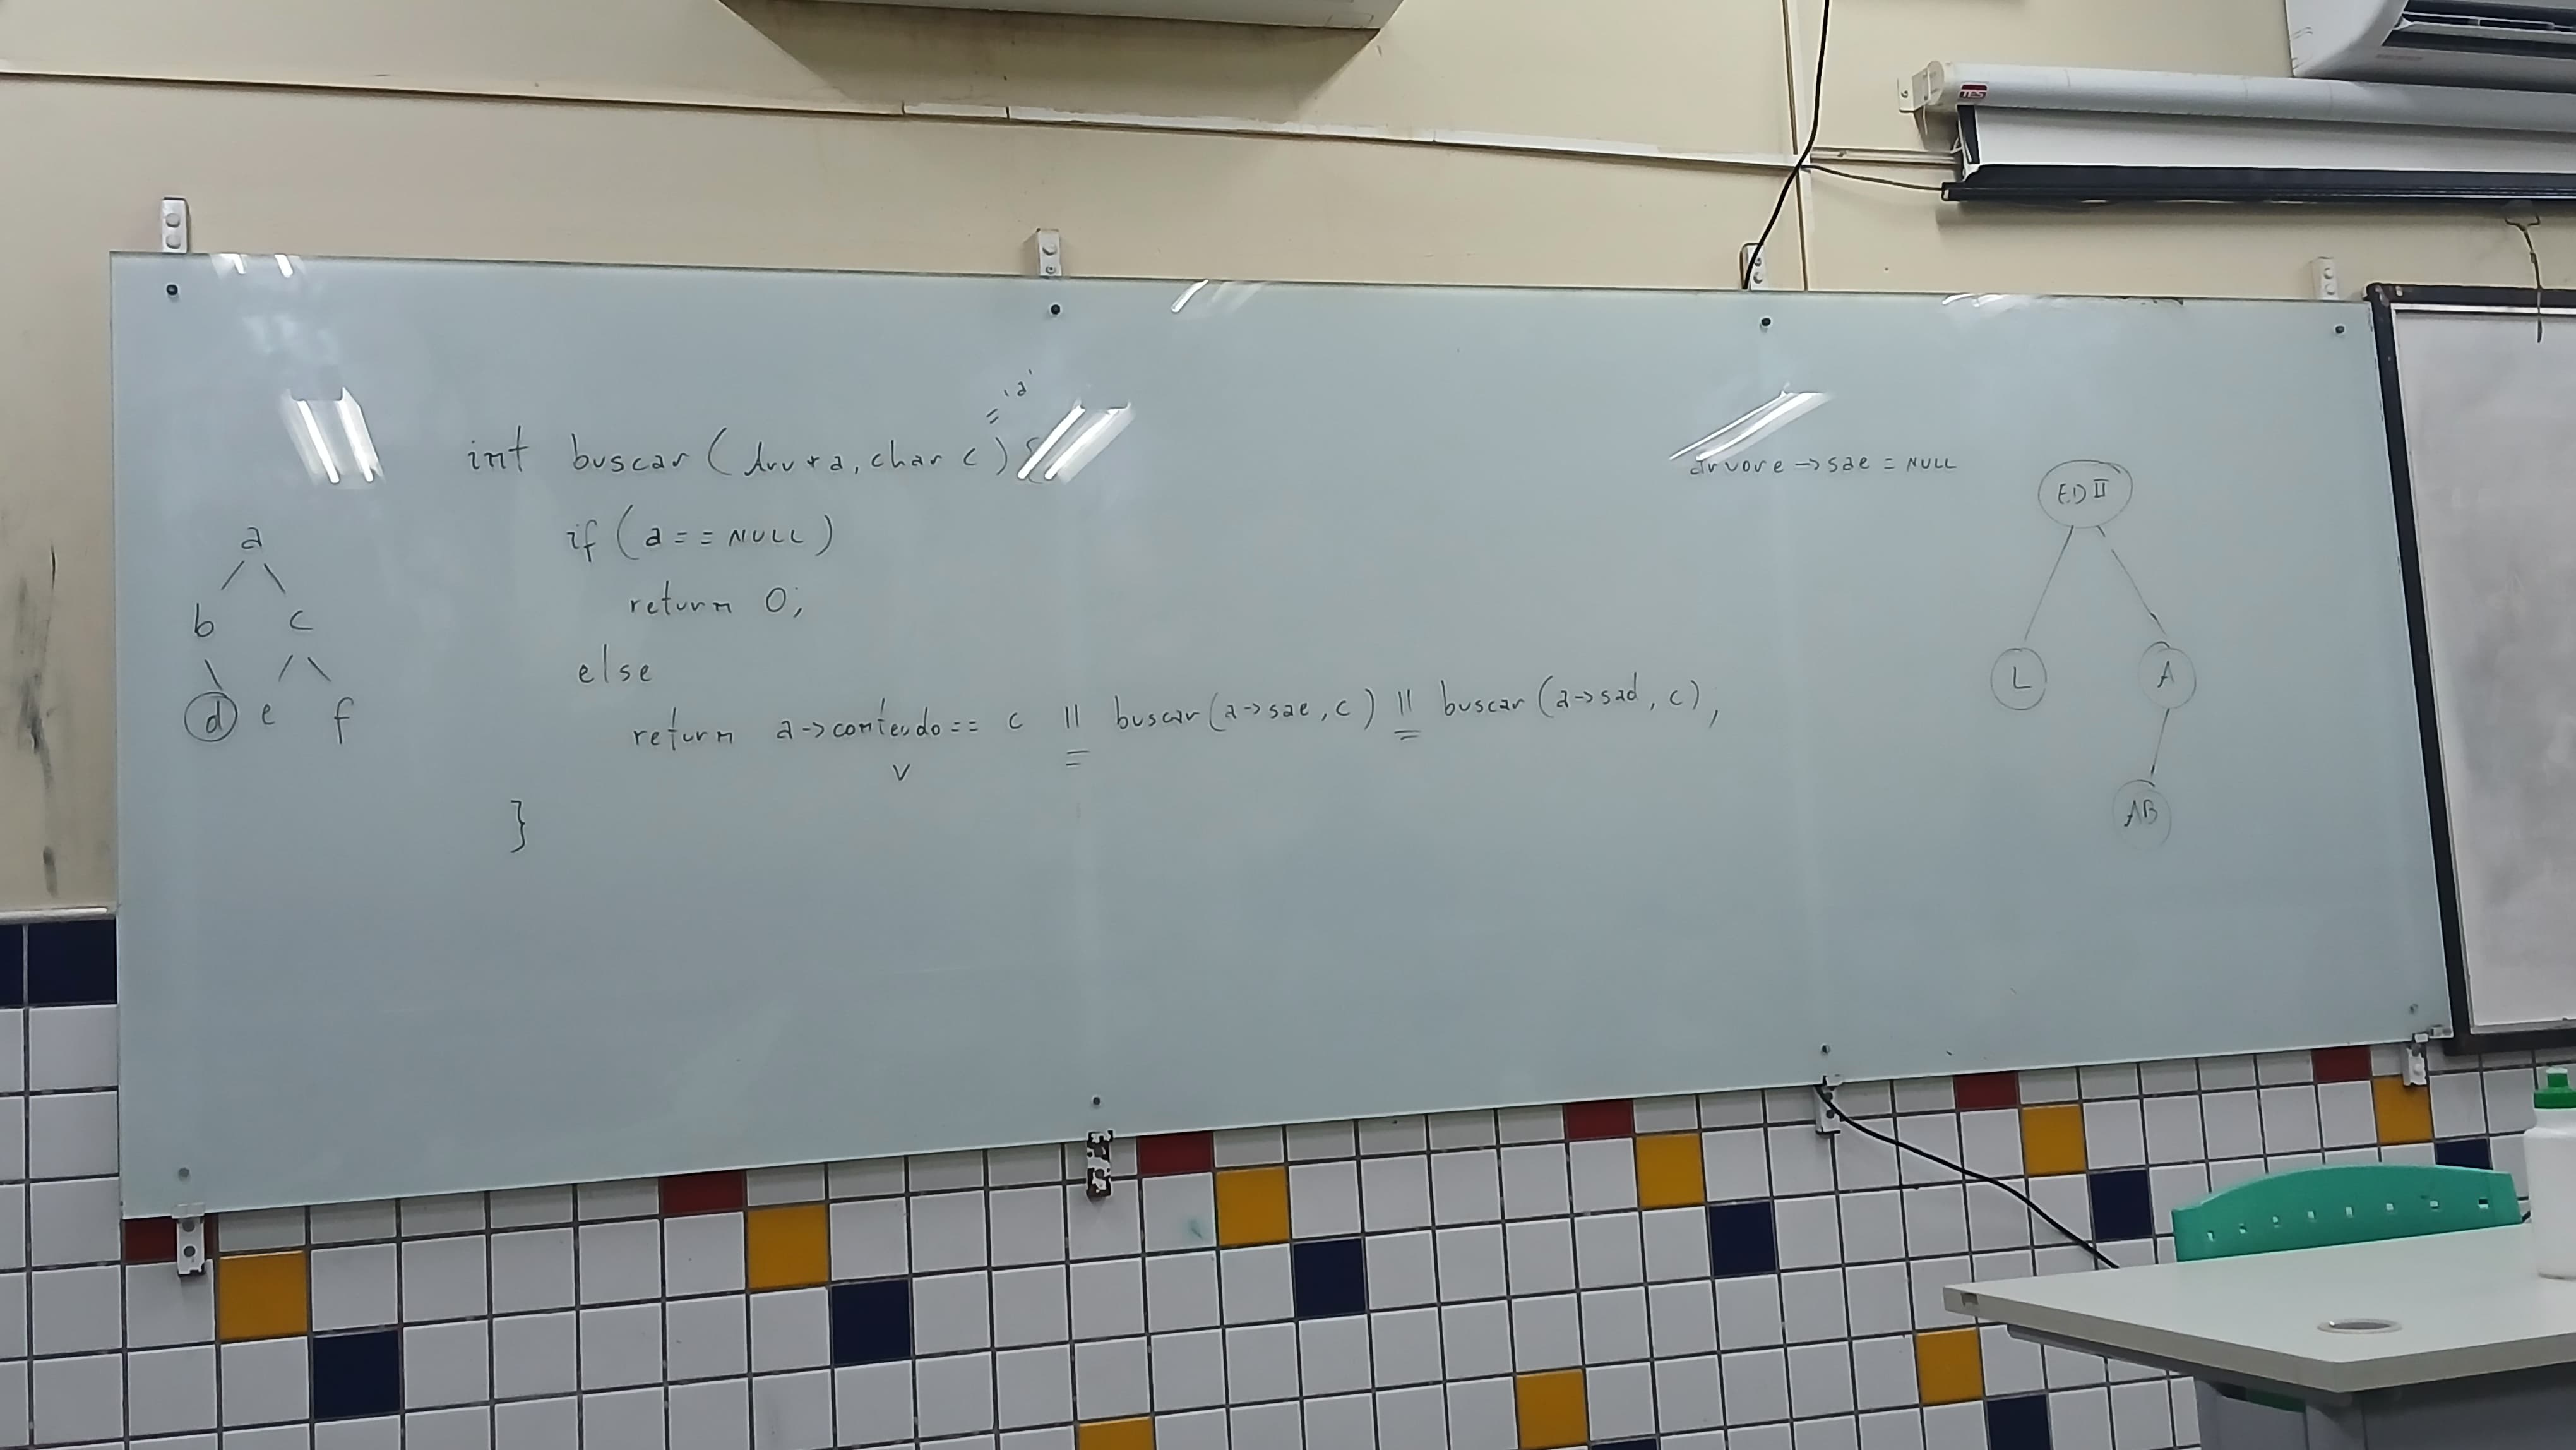 = 'a'
int buscar (Arv * a, char c) {
if (a == NULL)
return 0;
else
return a->conteudo == c || buscar (a->sae, c) || buscar (a->sad, c);
V
}
a
b c
d e f
arvore -> sae = NULL
ED II
L A
AB
TES